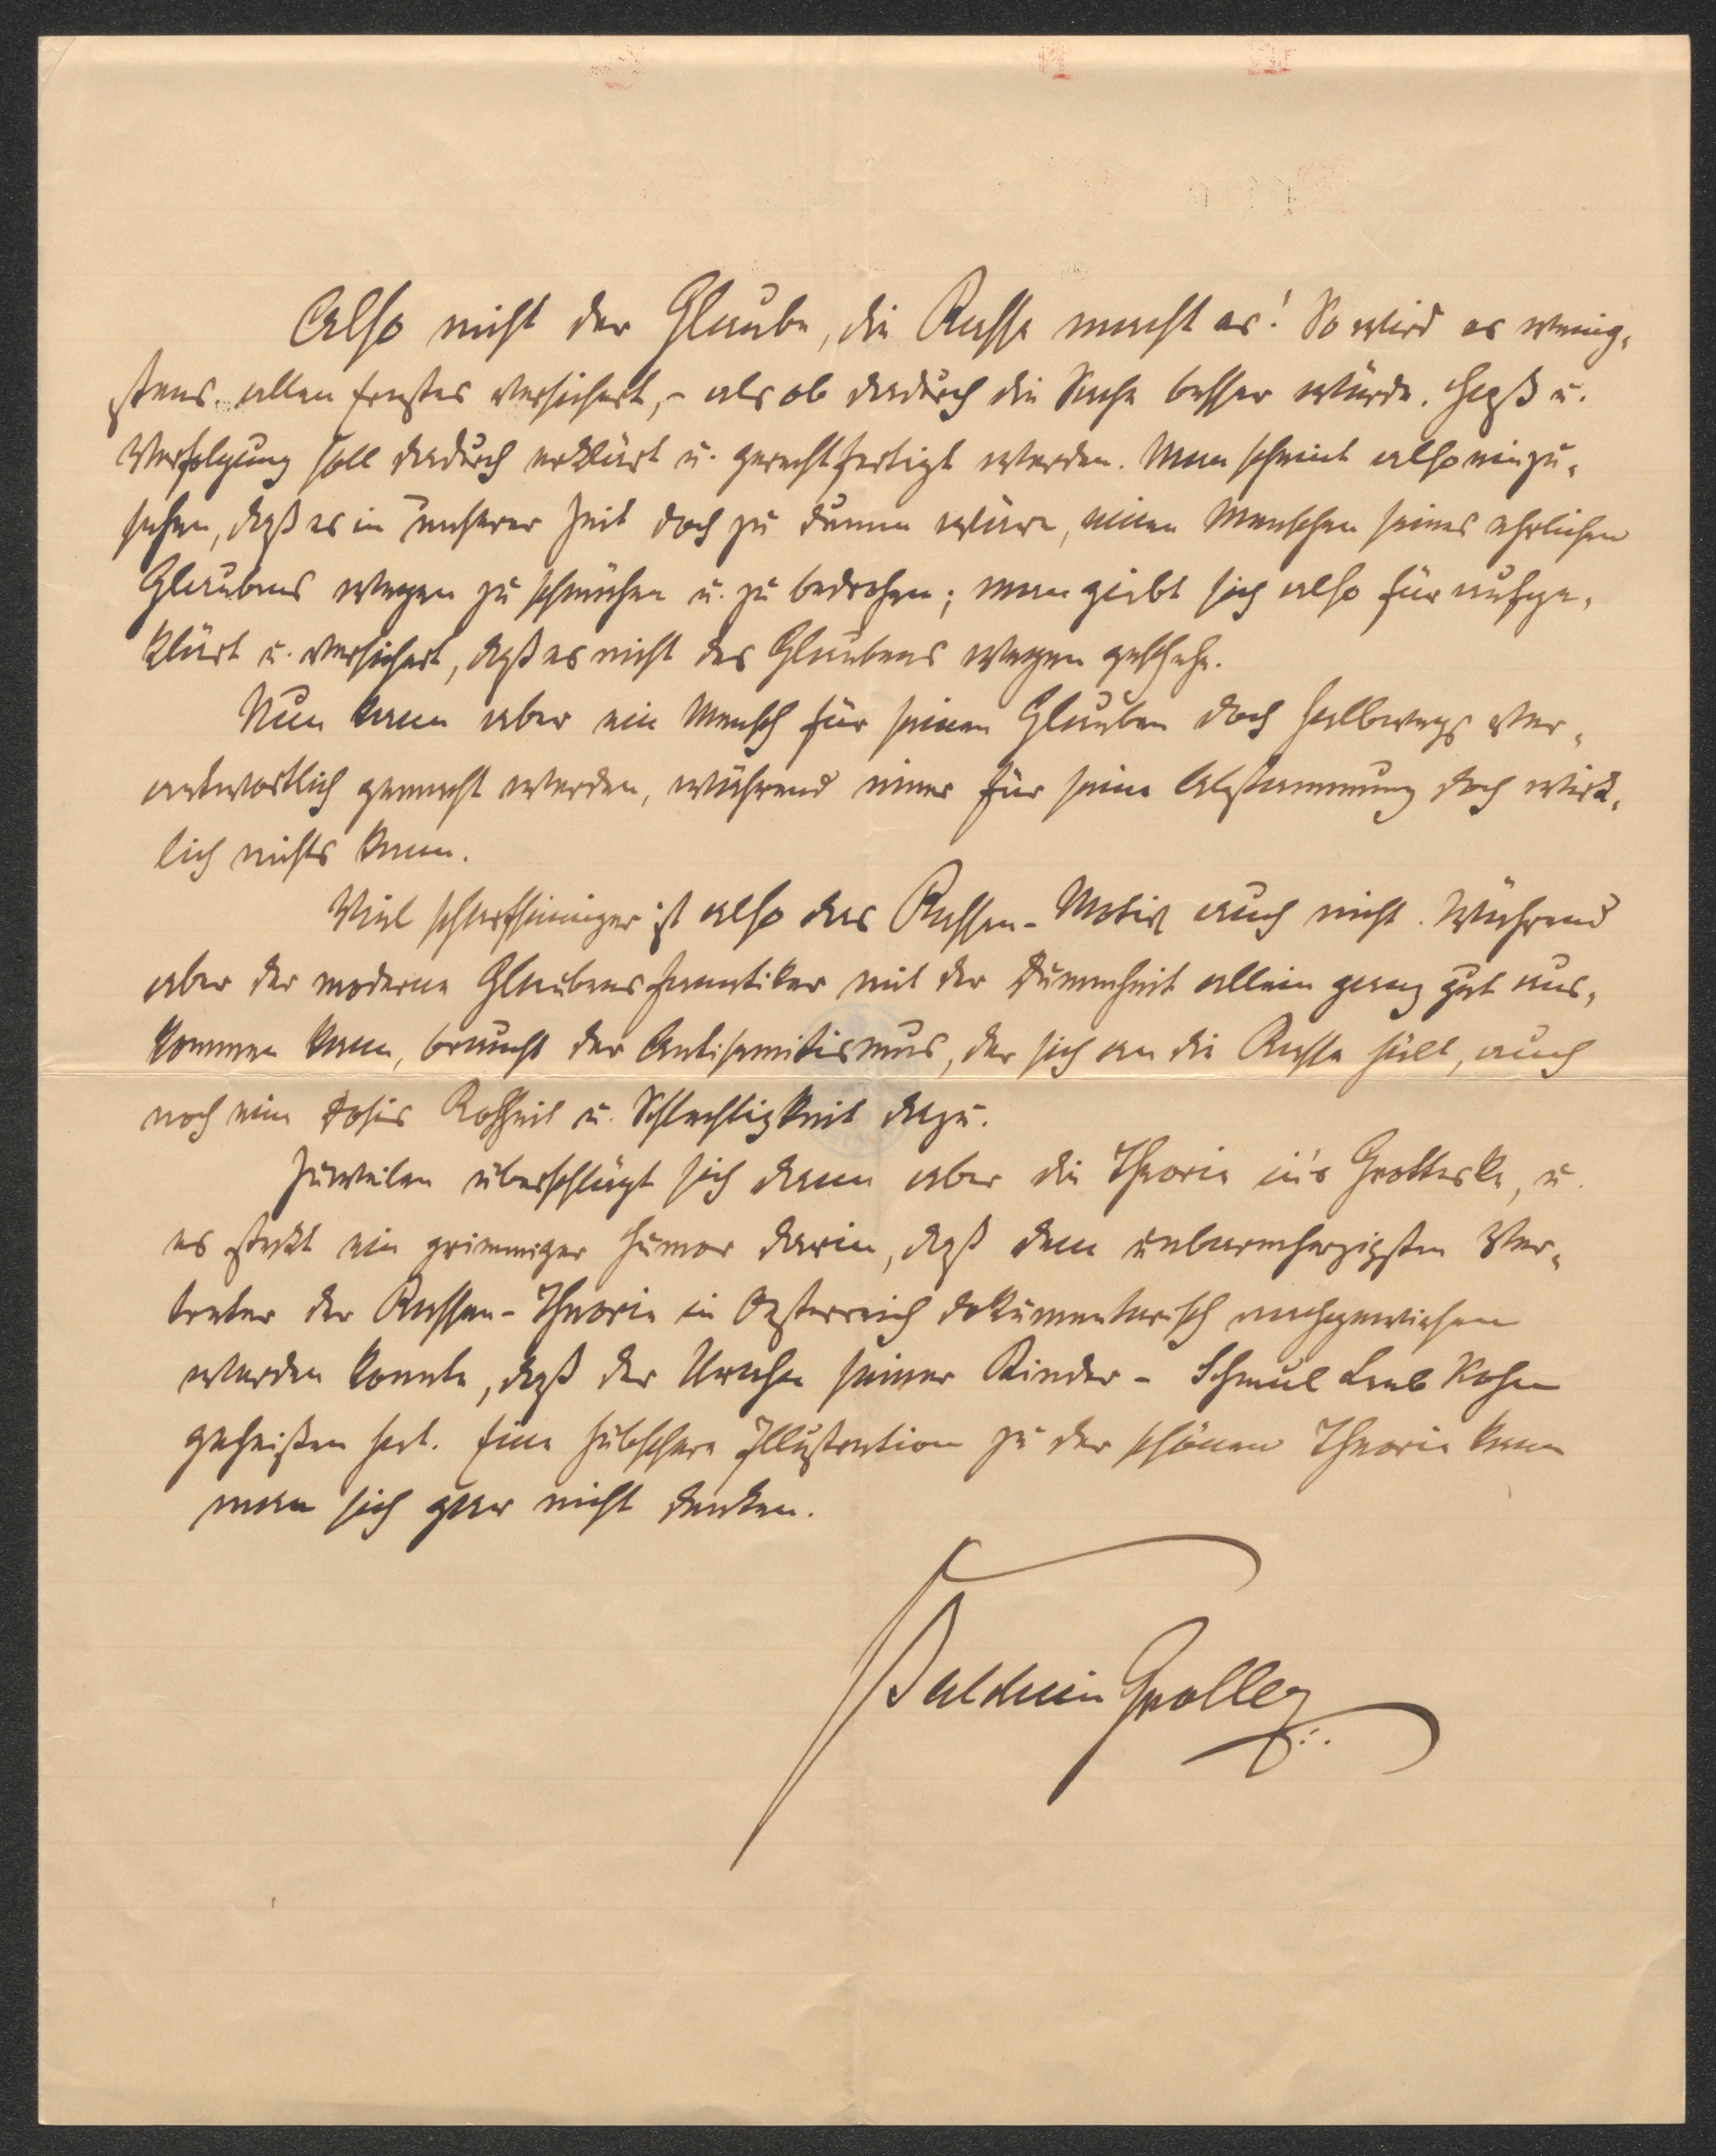 Also nicht der Glaube, die Rasse macht es! So wird es wenig-
stens allen Ernstes versichert, – als ob dadurch die Sache besser würde. Haß u.
Verfolgung soll dadurch erklärt u. gerechtfertigt werden. Man scheint also einzu-
sehen, daß es in unserer Zeit doch zu dumm wäre, einen Menschen seines ehrlichen
Glaubens wegen zu schmähen u. zu bedrohen; man giebt sich also für aufge-
klärt u. versichert, daß es nicht des Glaubens wegen geschehe.
Nun kann aber ein Mensch für seinen Glauben doch halbwegs ver-
antwortlich gemacht werden, während einer für seine Abstammung doch wirk-
lich nichts kann.
Viel scharfsinniger ist also das Rassen-Motiv auch nicht. Während
aber der moderne Glaubensfanatiker mit der Dummheit allein ganz gut aus-
kommen kann, braucht der Antisemitismus, der sich an die Rasse hält, auch
noch eine Dosis Rohheit u. Schlechtigkeit dazu.
Zuweilen überschlägt sich dann aber die Theorie in's Grotteske, u.
es steckt ein grimmiger Humor darin, daß dem unbarmherzigsten Ver-
treter der Rassen-Theorie in Oesterreich dokumentarisch nachgewiesen
werden konnte, daß der Urahn seiner Kinder – Schmul Leeb Kohn
geheißen hat. Eine hübschere Illustration zu der schönen Theorie kann
man sich gar nicht denken.
Balduin Groller